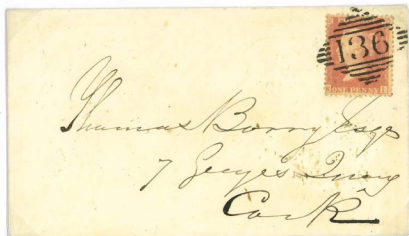 136
ONE PENNY
Thomas Esqr
7 George's Quay
Cork